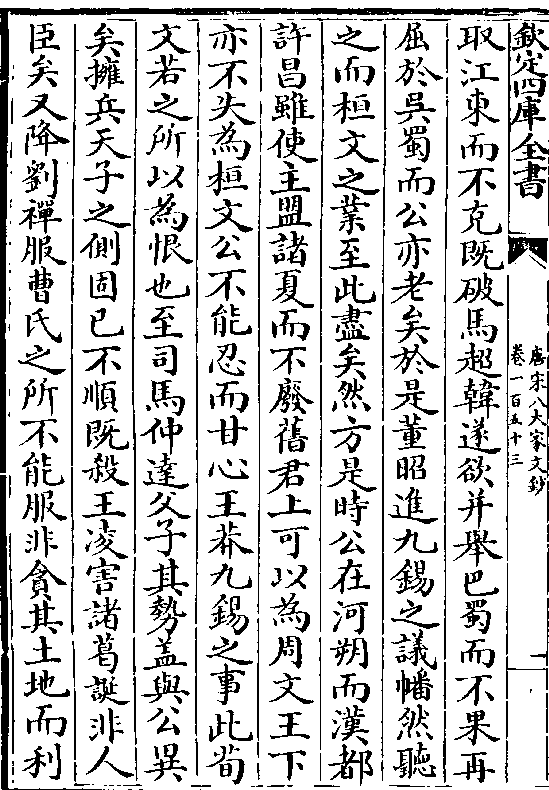 欽定四庫全書
唐宋八大家文鈔
卷一百五十三
一
取江東而不克既破馬超韓遂欲并舉巴蜀而不果再
屈於吳蜀而公亦老矣於是董昭進九錫之議幡然聽
之而桓文之業至此盡矣然方是時公在河朔而漢都
許昌雖使主盟諸夏而不廢舊君上可以為周文王下
亦不失為桓文公不能忍而甘心王莽九錫之事此荀
文若之所以為恨也至司馬仲達父子其勢盖與公異
矣擁兵天子之側固已不順既殺王凌害諸葛誕非人
臣矣又降劉禪服曹氏之所不能服非貪其土地而利